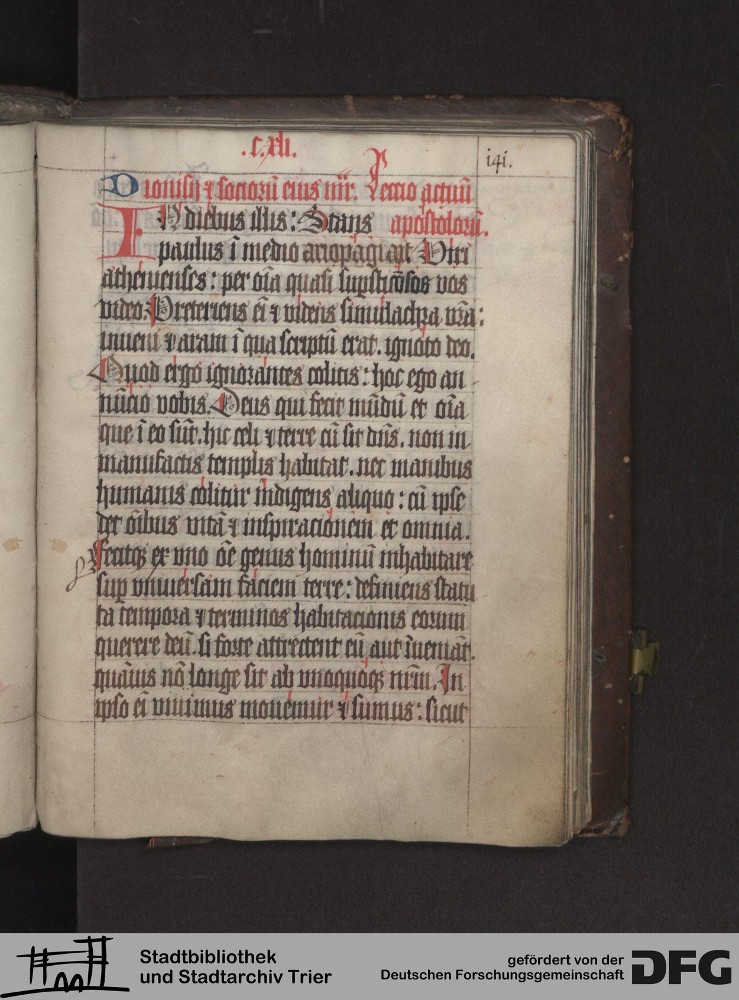 .c.xli.
141.
Dionisij ⁊ socioru̅ eius m̅r. Lectio actuu̅
IN diebus illis: Stans apostoloru̅.
paulus i̅ medio ariopagi ait Viri
athenienses: per o̅ia quasi sup̲stic̅osos vos
video. Preteriens e̅i ⁊ videns simulachra v̅ra:
inueni ⁊ aram i̅ qua scriptu̅ erat. ignoto deo.
Quod ergo ignorantes colitis: hoc ego an
nu̅cio vobis. Deus qui fecit mu̅du̅ et o̅ia
que i̅ eo su̅t. hic celi ⁊ terre cu̅ sit dn̅s. non in
manufactis templis habitat. nec manibus
humanis colitur indigens aliquo: cu̅ ipse
det o̅ibus vita̅ ⁊ inspiracionem et omnia.
fecitqȝ ex vno o̅e genus hominu̅ inhabitare
sup̲ vniuersam faciem terre: definiens statu
ta tempora ⁊ terminos habitacionis eorum
querere deu̅. si forte attrectent eu̅ aut i̅uenia̅t.
qua̅uis no̅ longe sit ab vnoquoqȝ n̅rm̅. In
ipso e̅i viuimus mouemur ⁊ sumus: sicut
Stadtbibliothek
und Stadtarchiv Trier
gefördert von der
Deutschen Forschungsgemeinschaft
DFG